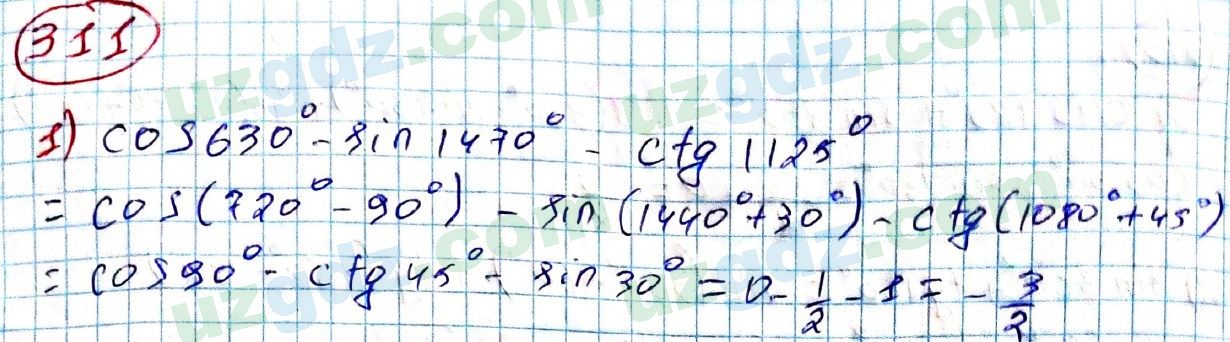 311
1) cos 630° - sin 1470° - ctg 1125°
= cos(720° - 90°) - sin(1440° + 30°) - ctg(1080° + 45°)
= cos 90° - ctg 45° - sin 30° = 0 - 1/2 - 1 = - 3/2
uzgdz.com
uzgdz.com
uzgdz.com
uzgdz.com